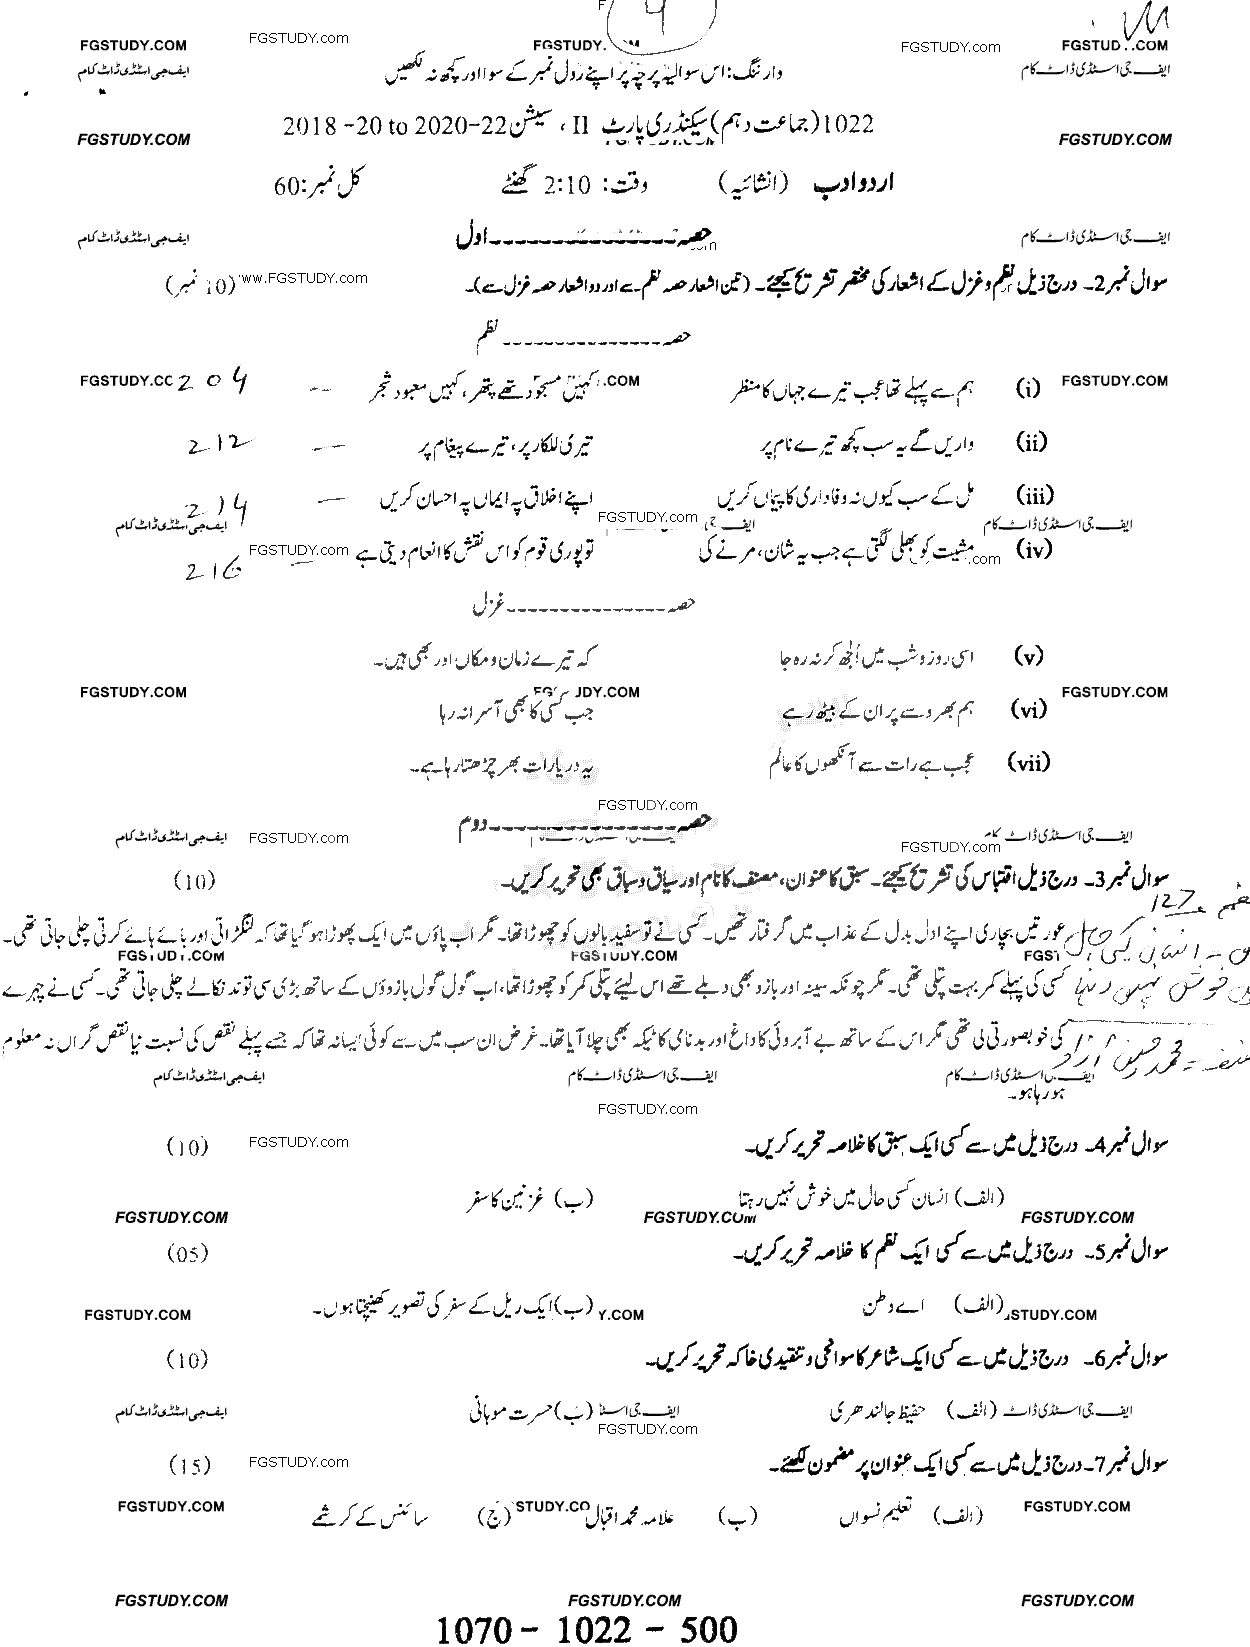 FGSTUDY.COM FGSTUDY.com FGSTUDY. FGSTUDY.com FGSTUD
ایف جی اسٹڈی ڈاٹ کام وارننگ: اس سوالیہ پرچہ پر اپنے رول نمبر کے سوا اور کچھ نہ لکھیں ایف جی اسٹڈی ڈاٹ کام
1022 (جماعت دہم) سیکنڈری پارٹ II ، سیشن 2018-20 to 2020-22
FGSTUDY.COM FGSTUDY.COM
اردو ادب (انشائیہ) وقت: 2:10 گھنٹے کل نمبر: 60
حصہ ---------------- اول
ایف جی اسٹڈی ڈاٹ کام ایف جی اسٹڈی ڈاٹ کام
سوال نمبر 2۔ درج ذیل نظم و غزل کے اشعار کی مختصر تشریح کیجئے۔ (تین اشعار حصہ نظم سے اور دو اشعار حصہ غزل سے)۔ (10 نمبر) www.FGSTUDY.com
حصہ --------------- نظم
(i) ہم سے پہلے تھا عجب تیرے جہاں کا منظر کہیں مسجود تھے پتھر، کہیں معبود شجر -- 204
FGSTUDY.COM .COM FGSTUDY.CO
(ii) واریں گے یہ سب کچھ تیرے نام پر تیری للکار پر، تیرے پیغام پر -- 212
(iii) مل کے سب کیوں نہ وفاداری کا پیماں کریں اپنے اخلاق پہ ایماں پہ احسان کریں -- 214
ایف جی اسٹڈی ڈاٹ کام FGSTUDY.com ایف جی اسٹڈی ڈاٹ کام
(iv) مشیت کو بھلی لگتی ہے جب یہ شان، مرنے کی تو پوری قوم کو اس نقش کا انعام دیتی ہے -- 216
.com FGSTUDY.com
حصہ --------------- غزل
(v) اسی روز و شب میں اُلجھ کر نہ رہ جا کہ تیرے زمان و مکاں اور بھی ہیں۔
FGSTUDY.COM FGSTUDY.COM FGSTUDY.COM
(vi) ہم بھروسے پر ان کے بیٹھ رہے جب کسی کا بھی آسرا نہ رہا
(vii) عجب ہے رات سے آنکھوں کا عالم یہ دریا رات بھر چڑھتا رہا ہے۔
FGSTUDY.com
حصہ ---------------- دوم
ایف جی اسٹڈی ڈاٹ کام FGSTUDY.com FGSTUDY.com ایف جی اسٹڈی ڈاٹ کام
سوال نمبر 3۔ درج ذیل اقتباس کی تشریح کیجئے۔ سبق کا عنوان، مصنف کا نام اور سیاق و سباق بھی تحریر کریں۔ (10)
127
عورتیں بچاری اپنے ادل بدل کے عذاب میں گرفتار تھیں۔ کسی نے تو سفید بالوں کو چھوڑا تھا۔ مگر اب پاؤں میں ایک پھوڑا ہو گیا تھا کہ لنگڑاتی اور ہائے ہائے کرتی چلی جاتی تھی۔
FGSTUDY.COM FGSTUDY.COM FGST
کسی کی پہلے کمر بہت پتلی تھی۔ مگر چونکہ سینہ اور بازو بھی دبلے تھے اس لیئے پتلی کمر کو چھوڑا تھا، اب گول گول بازوؤں کے ساتھ بڑی سی توند نکالے چلی جاتی تھی۔ کسی نے چہرے
کی خوبصورتی لی تھی مگر اس کے ساتھ بے آبروئی کا داغ اور بدنامی کا ٹیکہ بھی چلا آیا تھا۔ غرض ان سب میں سے کوئی ایسا نہ تھا کہ جسے پہلے نقص کی نسبت نیا نقص گراں نہ معلوم
ایف جی اسٹڈی ڈاٹ کام ایف جی اسٹڈی ڈاٹ کام ایف جی اسٹڈی ڈاٹ کام
ہو رہا ہو۔
FGSTUDY.com
سوال نمبر 4۔ درج ذیل میں سے کسی ایک سبق کا خلاصہ تحریر کریں۔ FGSTUDY.com (10)
(الف) انسان کسی حال میں خوش نہیں رہتا (ب) غزنین کا سفر
FGSTUDY.COM FGSTUDY.COM FGSTUDY.COM
سوال نمبر 5۔ درج ذیل میں سے کسی ایک نظم کا خلاصہ تحریر کریں۔ (05)
(الف) اے وطن (ب) ایک ریل کے سفر کی تصویر کھینچتا ہوں۔
FGSTUDY.COM Y.COM STUDY.COM
سوال نمبر 6۔ درج ذیل میں سے کسی ایک شاعر کا سوانحی و تنقیدی خاکہ تحریر کریں۔ (10)
(الف) حفیظ جالندھری (ب) حسرت موہانی
ایف جی اسٹڈی ڈاٹ ایف جی اسٹ ایف جی اسٹڈی ڈاٹ کام
FGSTUDY.com
سوال نمبر 7۔ درج ذیل میں سے کسی ایک عنوان پر مضمون لکھئے۔ FGSTUDY.com (15)
(الف) تعلیم نسواں (ب) علامہ محمد اقبال (ج) سائنس کے کرشمے
FGSTUDY.COM STUDY.CO FGSTUDY.COM
FGSTUDY.COM FGSTUDY.COM FGSTUDY.COM
1070 - 1022 - 500